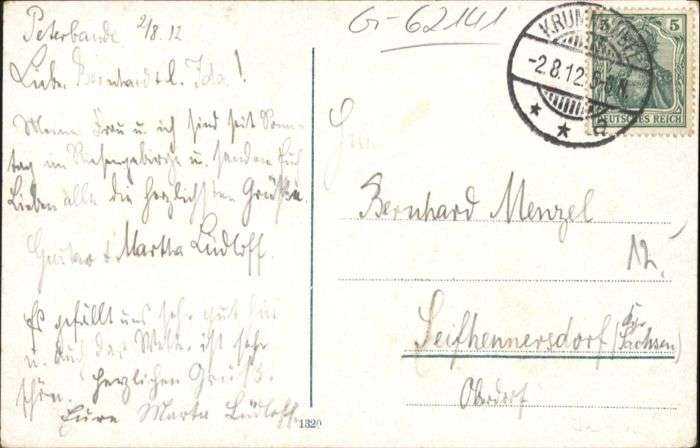 Peterbaude 2/8.12
Lieber Bernhard & l. Ida!
Meine Frau u. ich sind seit Sonn-
tag im Riesengebirge u. senden Euch
Lieben alle die herzlichsten Grüße.
Gustav & Martha Lüdloff.
Es gefällt uns sehr gut hier
u. auch das Wetter ist sehr
schön. herzlichen Gruß
Eure Marta Lüdloff
1320
G-62141
KRUMMHÜBEL
-2.8.12.5-6N.
* * a
5
DEUTSCHES REICH
Bernhard Menzel
Seifhennersdorf
Sachsen)
Oberdorf